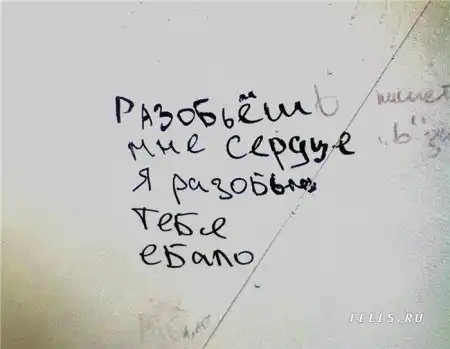 Разобьёшь
мне сердце
я разобью
тебе
ебало
пишет
"ь"
FEELS.RU